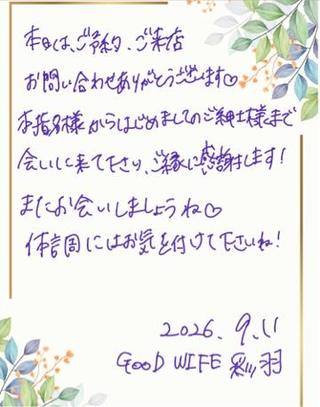 本日は、ご予約、ご来店
お問い合わせありがとうございます♡
本指名様からはじめましてのご紳士様まで
会いに来て下さり、ご縁に感謝します!
またお会いしましょうね♡
体調にはお気を付けて下さいね!
2026.9.11
GOOD WIFE 彩羽